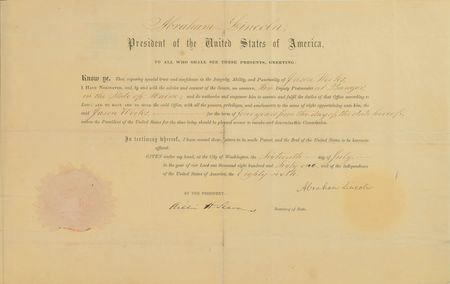 Abraham Lincoln,
President of the United States of America,
TO ALL WHO SHALL SEE THESE PRESENTS, GREETING:
Know ye, That, reposing special trust and confidence in the Integrity, Ability, and Punctuality of Jason Weeks,
I HAVE NOMINATED, and, by and with the advice and consent of the Senate, DO APPOINT, him Deputy Postmaster at Bangor,
in the State of Maine; and do authorize and empower him to execute and fulfil the duties of that Office according to
Law; AND TO HAVE AND TO HOLD the said Office, with all the powers, privileges, and emoluments to the same of right appertaining unto him, the
said Jason Weeks, for the term of four years from the day of the date hereof,
unless the President of the United States for the time being should be pleased sooner to revoke and determine this Commission.
In testimony whereof, I have caused these Letters to be made Patent, and the Seal of the United States to be hereunto
affixed.
GIVEN under my hand, at the City of Washington, the Sixteenth day of July,
in the year of our Lord one thousand eight hundred and Sixty one, and of the Independence
of the United States of America, the Eighty sixth.
Abraham Lincoln
BY THE PRESIDENT:
Secretary of State.